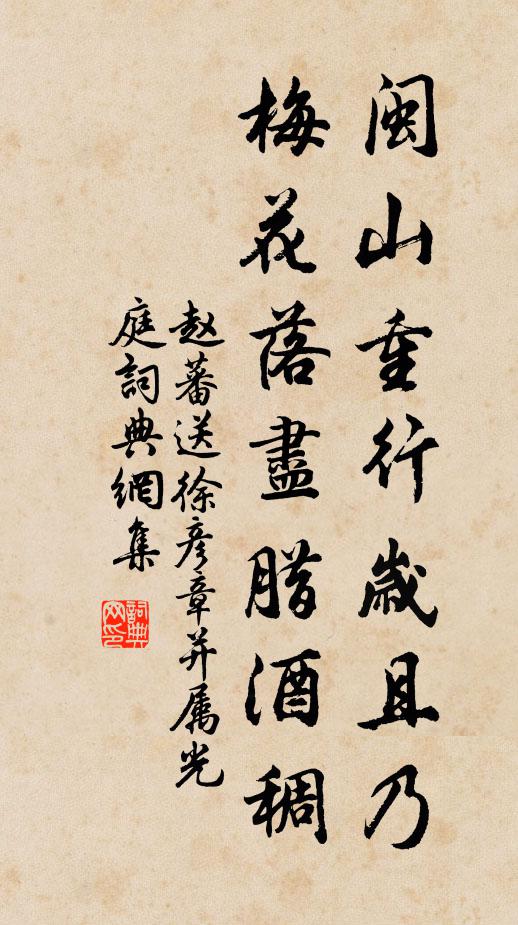 闽山重行歲且乃
梅花落盡腊酒稠
赵蕃送徐彦章并属光
庭詞典網集
詞典网印